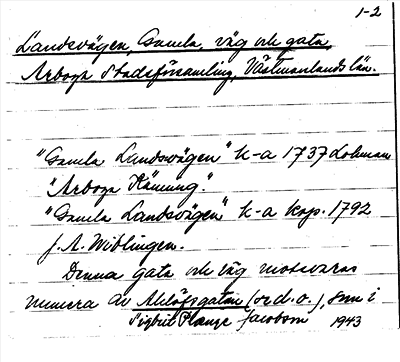 1-2
Landsvägen, Gamla, väg och gata,
Arboga Stadsförsamling, Västmanlands län.
"Gamla Landsvägen" k-a 1737 Lohman
"Arboga Känning".
"Gamla Landsvägen" k-a kop. 1792
J. A. Wiblingen.
Denna gata och väg motsvaras
numera av Ahllöfsgatan (se d. o.), som i
Sigbrit Plænge Jacobson 1943